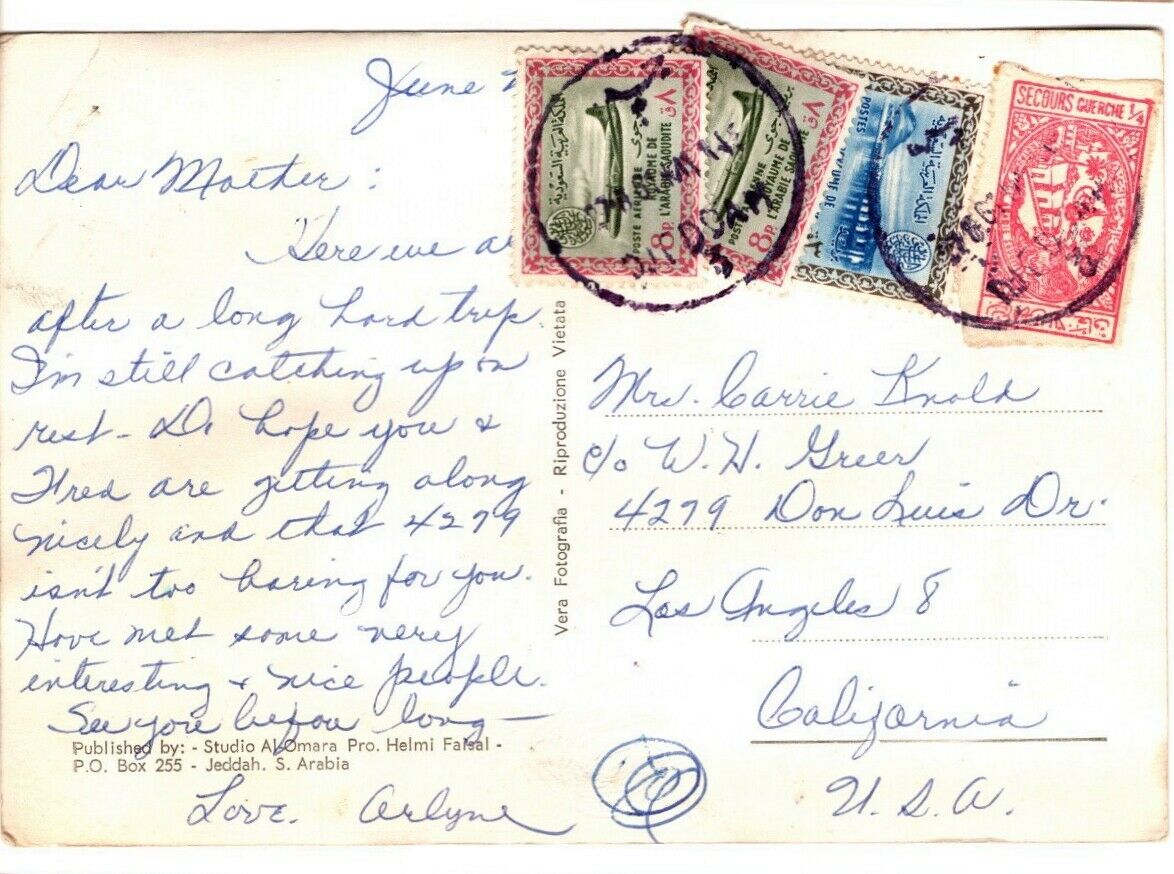 June
Dear Mother:
Here we
after a long hard trip.
I'm still catching up on
rest - Do hope you &
Fred are getting along
nicely and that 4279
isn't too boring for you.
Have met some very
interesting & nice people.
See you before long -
Love. Arlyne
Published by: - Studio Al Omara Pro. Helmi Faisal -
P.O. Box 255 - Jeddah. S. Arabia
Vera Fotografia - Riproduzione Vietata
المملكة العربية السعودية
بريد جوي
٨ ق
POSTE AERIENNE
ROYAUME DE
L'ARABIE SAOUDITE
8P.
٨ ق
POSTE AERIENNE
ROYAUME DE
L'ARABIE SAOUDITE
8P.
POSTES
المملكة العربية السعودية
SECOURS GUERCHE 1/4
DHAHRAN
Mrs. Carrie Knold
c/o W. H. Greer
4279 Don Luis Dr.
Los Angeles 8
California
U. S. A.